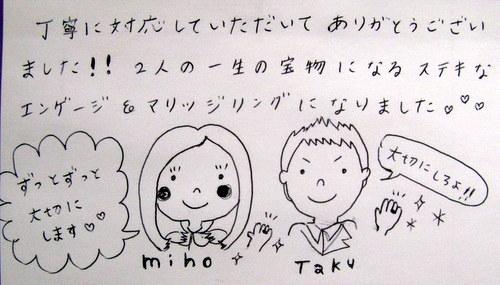 丁寧に対応していただいて ありがとうござい
ました!! 2人の一生の宝物になるステキな
エンゲージ&マリッジリングになりました♡♡♡
ずっとずっと
大切に
します♡♡
大切にしろよ!!
miho
Taku